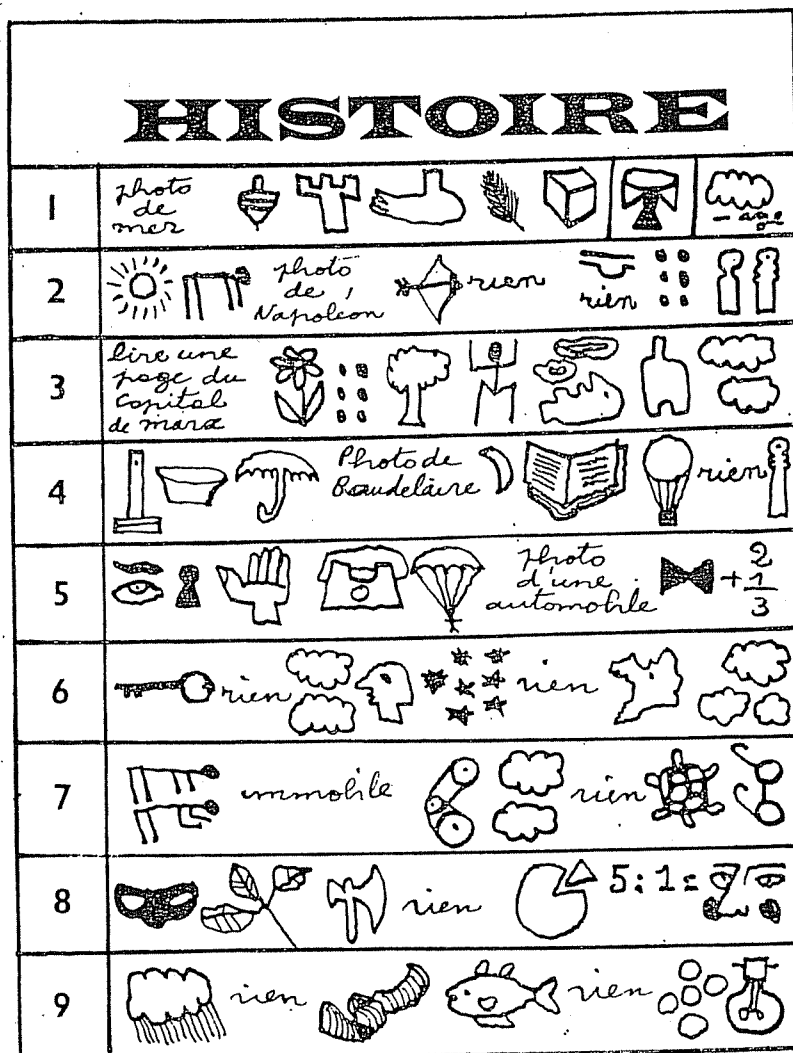 HISTOIRE
1
photo
de
mer
2
photo
de
Napoléon
rien
rien
3
lire une
page du
Capital
de marx
4
Photo de
Baudelaire
rien
5
photo
d'une
automobile
+ 2
1
3
6
rien
rien
7
immobile
rien
8
rien
5:1=
9
rien
rien